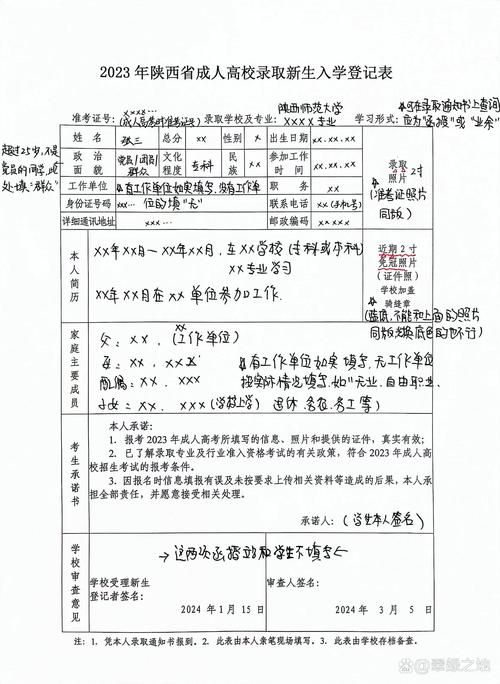 2023 年陕西省成人高校录取新生入学登记表
xxxx... 陕西师范大学 可在录取通知书上查询
准考证号：(成人高考时准考证号) 录取学校及专业：XXXX专业 学习形式：应为"函授"或"业余"
姓 名 张三 总分 xx 性别 x 出生日期 xx.xx.xx
超过28岁，不是党员的同学，此处填"群众"
政治面貌 党员/团员/群众 文化程度 专科 民族 xx 参加工作时间 xx.xx.xx
录取照片 2寸
(准考证照片同版)
工作单位 有工作单位如实填写，没有工作单位的填"无" 职 务 xx
身份证号码 xx... 联系电话 xx(手机号)
详细通讯地址 xx... 邮政编码 xxxxx
本人简历
xx年xx月—xx年xx月，在xx学校(专科或本科)
xx专业学习
xx年xx月在xx单位参加工作.
近期 2 寸
免冠照片
(证件照)
学校加盖
骑缝章
(蓝底，不能和上面的照片
同版或换底色的也不行)
家庭主要成员
父：xx，xx (工作单位)
母：xx，xxx 有工作单位如实填写，无工作单位
配偶：xx，xxx 按实际情况填写，如"无业、自由职业、
子女：xx，xxx(学校上学) 退休、务农、务工等)
考生承诺书
本人承诺：
1．报考 2023 年成人高考所填写的信息、照片和提供的证件，真实有效；
2．已了解录取专业及行业准入资格考试的有关政策，符合 2023 年成人高
校招生考试的报考条件。
3．因报名时信息填报有误及未按要求上传相关资料等造成的后果，本人承
担全部责任，并愿意接受相关处理。
承诺人：(学生本人签名)
学校审查意见
→这两次函授站和学生不填写←
学校受理新生
登记者签名：
2024 年 1 月 15 日
审查人签名：
2024 年 3 月 5 日
注：1．凭本人录取通知书报到。2．此表由本人亲笔现场填写。3．此表由学校存档备查。
翠绿之地